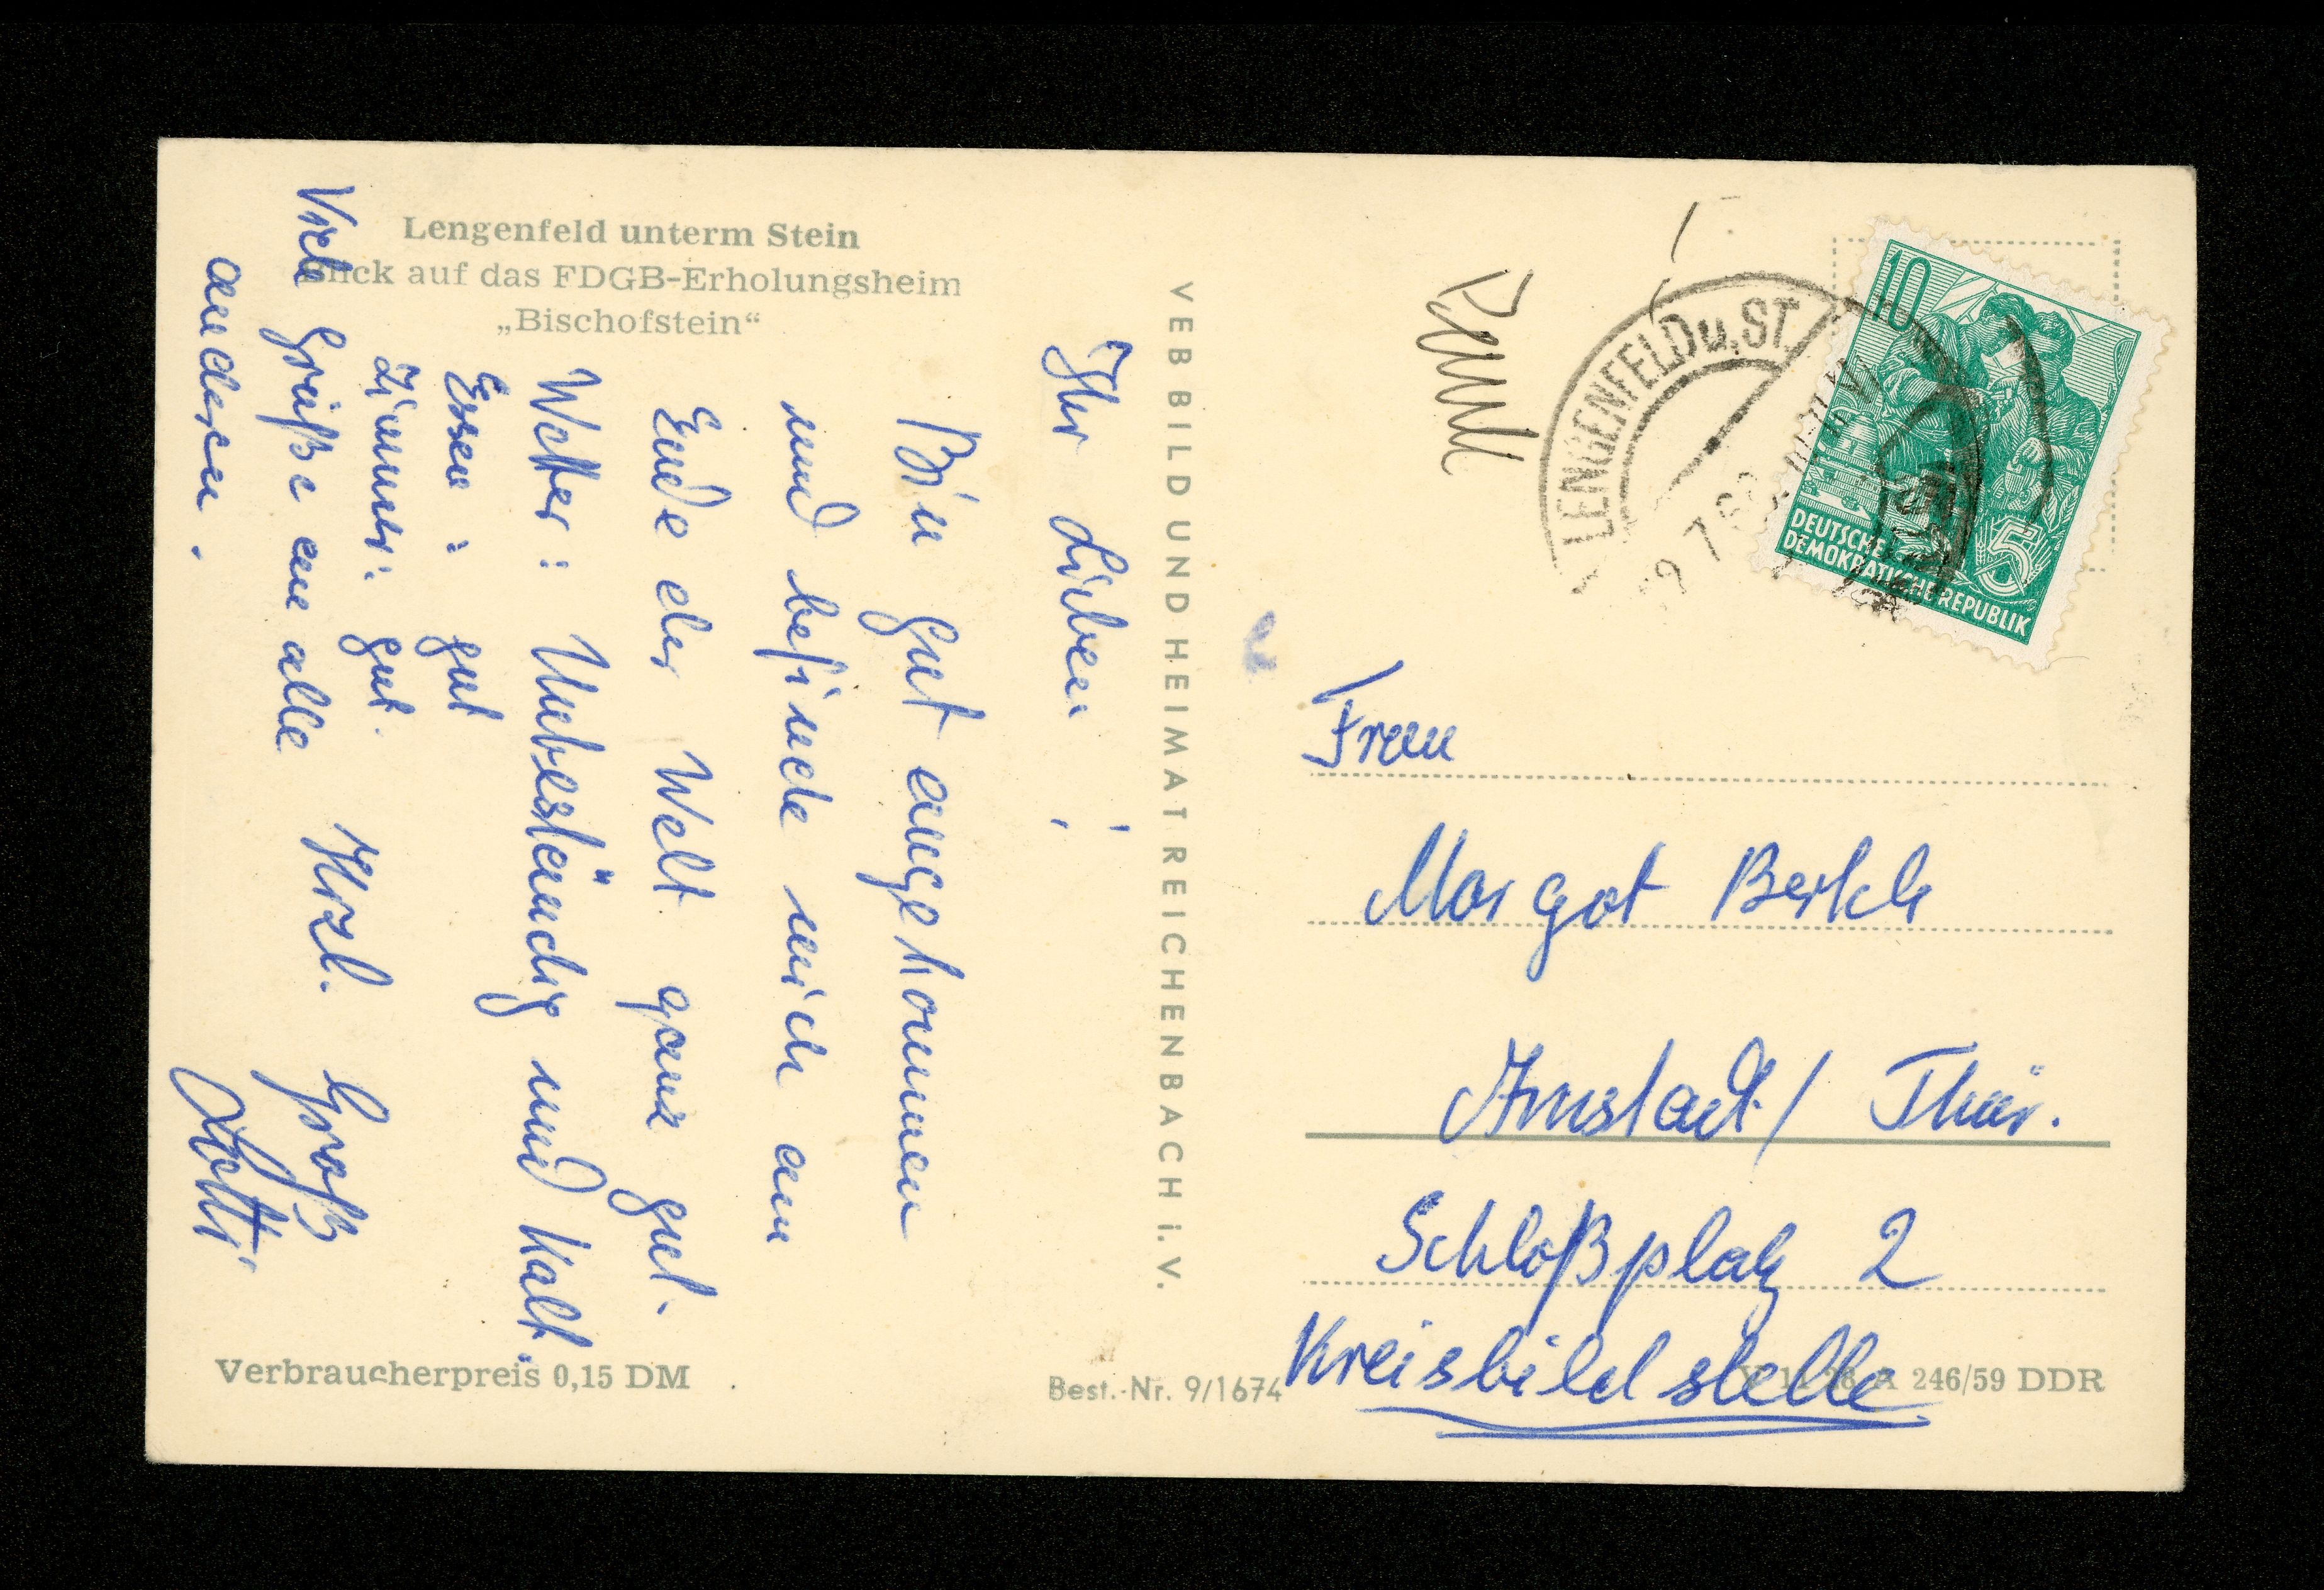 Lengenfeld unterm Stein
Blick auf das FDGB-Erholungsheim
„Bischofstein“
Ihr Lieben!
Bin gut angekommen
und befinde mich am
Ende der Welt ganz gut.
Wetter: Unbeständig und kalt.
Essen: gut
Zimmer: gut.
Viele Grüße an alle
anderen.
Herzl. Gruß
Lotti
Verbraucherpreis 0,15 DM
VEB BILD UND HEIMAT REICHENBACH i. V.
Best.-Nr. 9/1674
LENGENFELD u. ST.
10
5
DEUTSCHE
DEMOKRATISCHE REPUBLIK
Frau
Margot
Arnstadt / Thür.
Schloßplatz 2
Kreisbildstelle
A 246/59 DDR